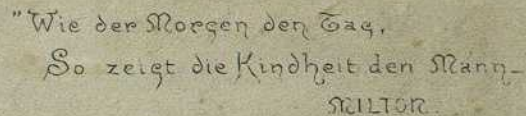 "Wie der Morgen den Tag,
So zeigt die Kindheit den Mann_
MILTON.